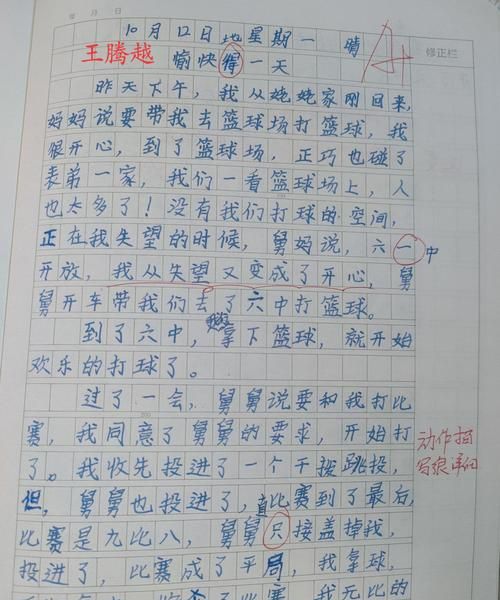 年 月 日
10月12日 星期一 晴 A+
修正栏
王腾越 愉快得一天
昨天下午，我从姥姥家刚回来，
妈妈说要带我去篮球场打篮球，我
很开心，到了篮球场，正巧也碰了
表弟一家，我们一看篮球场上，人
也太多了！没有我们打球的空间，
正在我失望的时候，舅妈说，六一中
开放，我从失望又变成了开心，舅
舅开车带我们去了六中打篮球。
到了六中，拿下篮球，就开始
欢乐的打球了。
过了一会，舅舅说要和我打比
赛，我同意了舅舅的要求，开始打
了。我收先投进了一个干拔跳投，
但，舅舅也投进了，直比赛到了最后，
比赛是九比八，舅舅只接盖掉我，
投进了，比赛成了平局，我拿球，
我无比的
动作描
写很详细